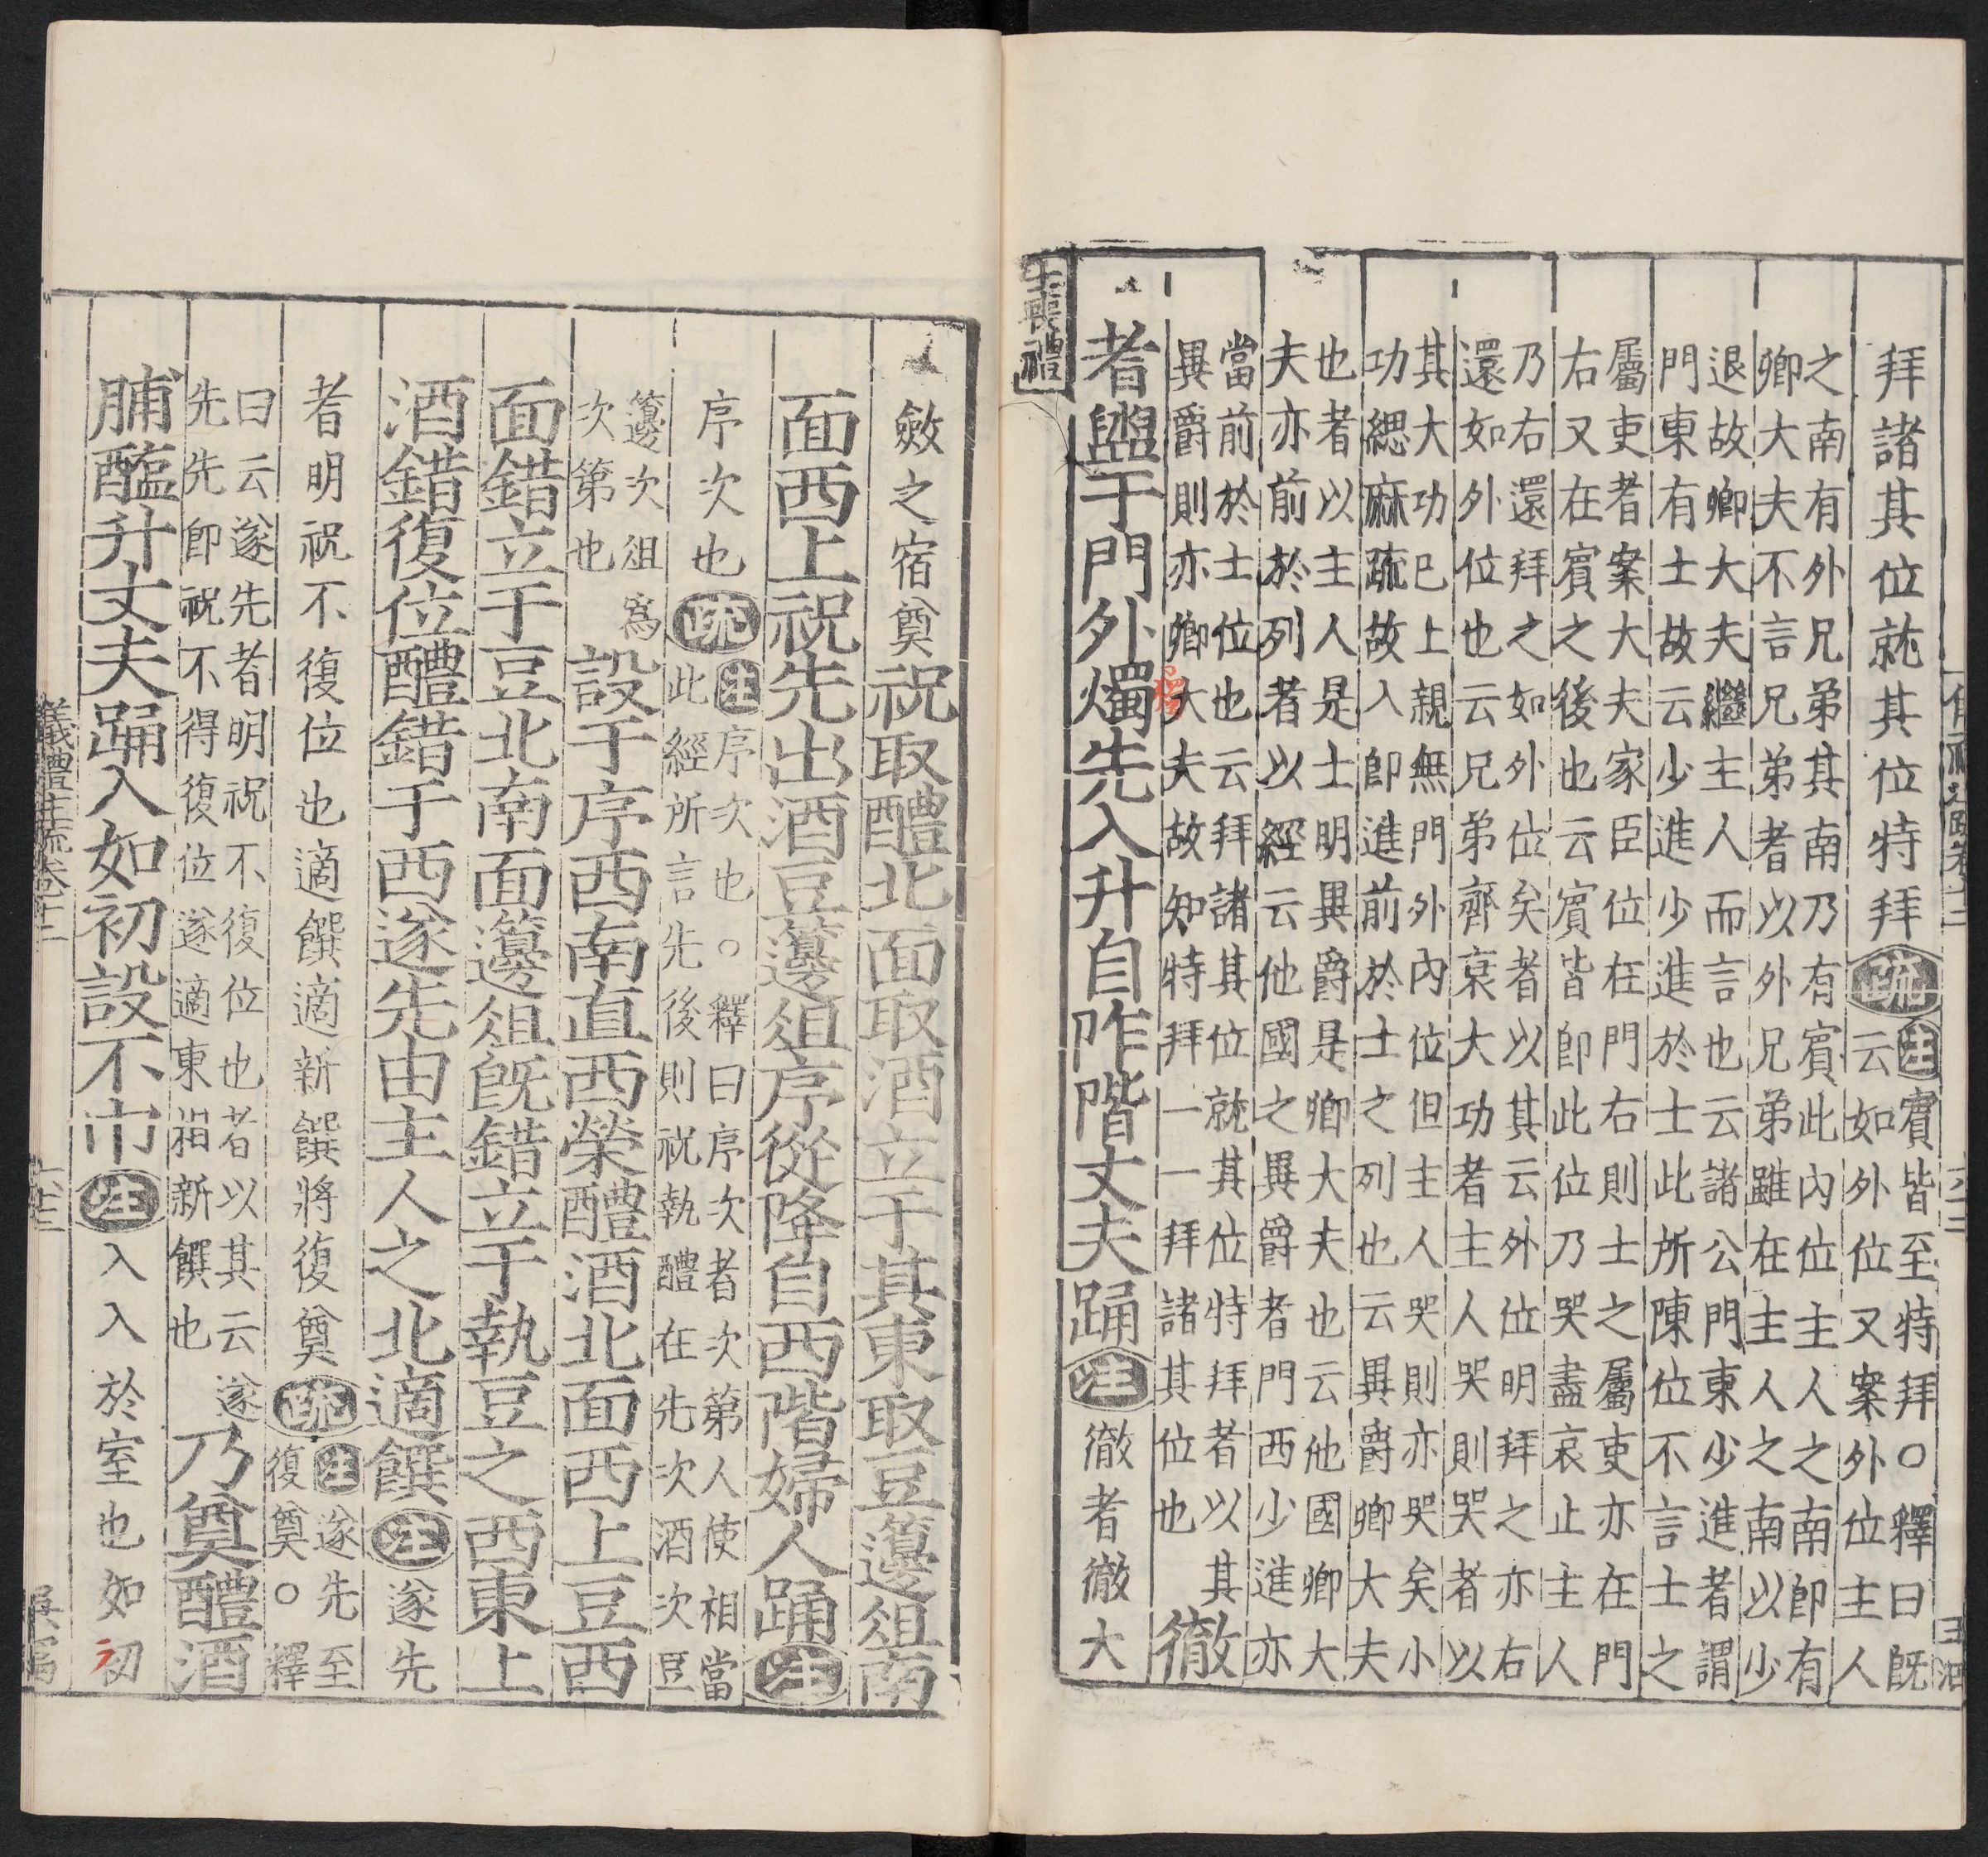 拜諸其位就其位特拜疏注賓皆至特拜○釋曰既
云如外位又案外位主人
之南有外兄弟其南乃有賓此內位主人之南即有
卿大夫不言兄弟者以外兄弟雖在主人之南以少
退故卿大夫繼主人而言也云諸公門東少進者謂
門東有士故云少進少進於士此所陳位不言士之
屬吏者案大夫家臣位在門右則士之屬吏亦在門
右又在賓之後也云賓皆即此位乃哭盡哀止主人
乃右還拜之如外位矣者以其云外位明拜之亦右
還如外位也云兄弟齊衰大功者主人哭則哭者以
其大功已上親無門外內位但主人哭則亦哭矣小
功緦麻疏故入即進前於士之列也云異爵卿大夫
也者以主人是士明異爵是卿大夫也云他國卿大
夫亦前於列者以經云他國之異爵者門西少進亦
當前於士位也云拜諸其位就其位特拜者以其
異爵則亦卿大夫故知特拜一一拜諸其位也徹
者盥于門外燭先入升自阼階丈夫踊注徹者徹大
士喪禮
斂之宿奠祝取醴北面取酒立于其東取豆籩俎南
面西上祝先出酒豆籩俎序從降自西階婦人踊注
序次也疏注序次也○釋曰序次者次第人使相當
此經所言先後則祝執醴在先次酒次豆
籩次俎為
次第也設于序西南直西榮醴酒北面西上豆西
面錯立于豆北南面籩俎既錯立于執豆之西東上
酒錯復位醴錯于西遂先由主人之北適饌注遂先
者明祝不復位也適饌適新饌將復奠疏注遂先至
復奠○釋
曰云遂先者明祝不復位也者以其云遂
先先即祝不得復位遂適東相新饌也乃奠醴酒
脯醢升丈夫踊入如初設不巾注入入於室也如初
儀禮註疏卷十二
六十三